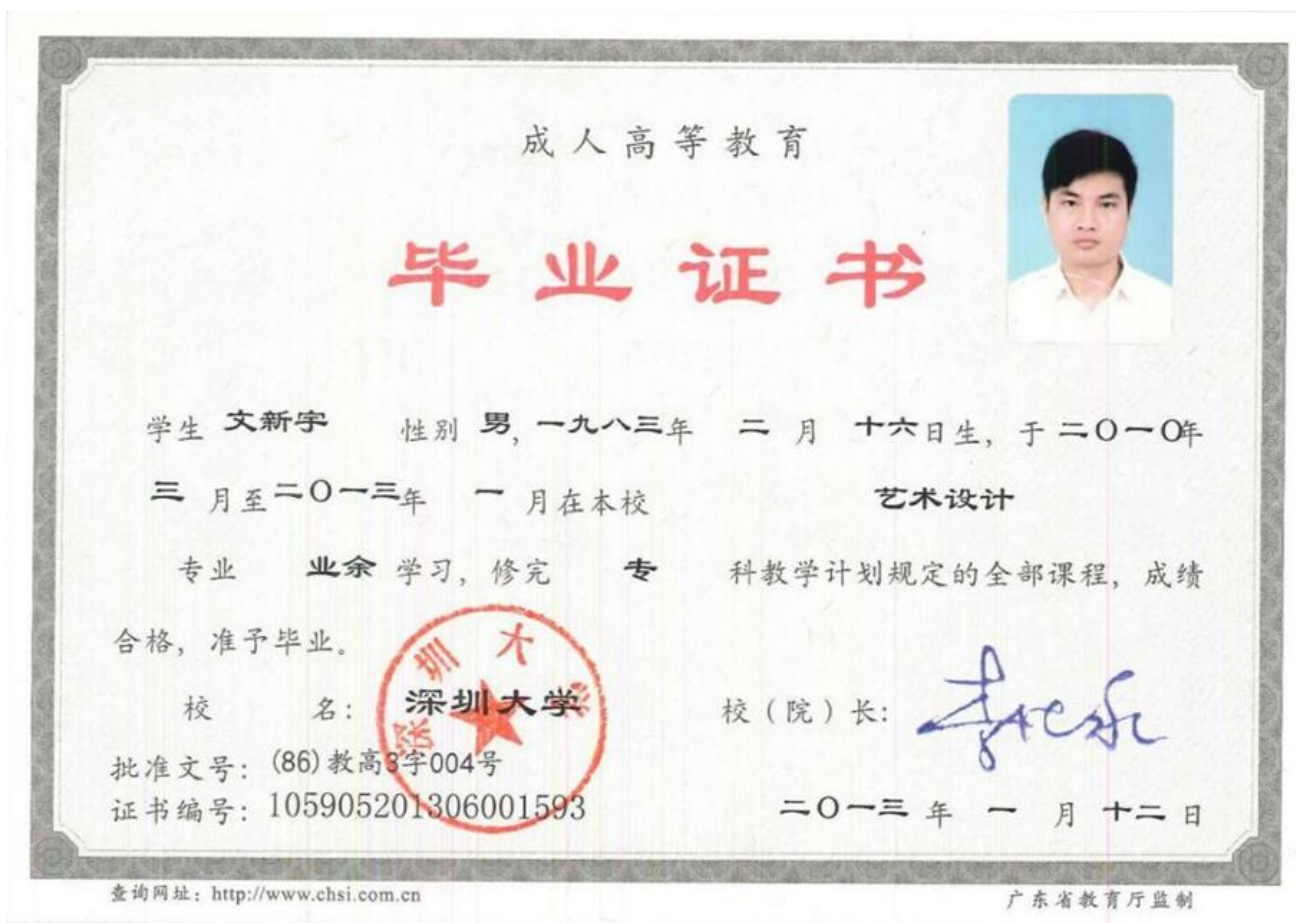 成人高等教育
毕业证书
学生 文新宇 性别 男, 一九八三年 二 月 十六日生, 于 二〇一〇年
三 月至 二〇一三年 一 月在本校 艺术设计
专业 业余 学习, 修完 专 科教学计划规定的全部课程, 成绩
合格, 准予毕业。
深圳大学
校 名: 深圳大学 校(院)长:
批准文号: (86)教高3字004号
证书编号: 105905201306001593 二〇一三 年 一 月 十二 日
查询网址: http://www.chsi.com.cn 广东省教育厅监制